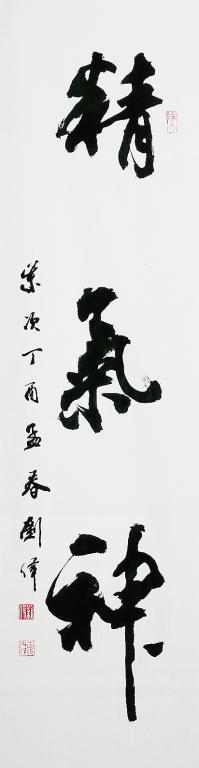 精氣神
歲次丁酉孟春劉偉